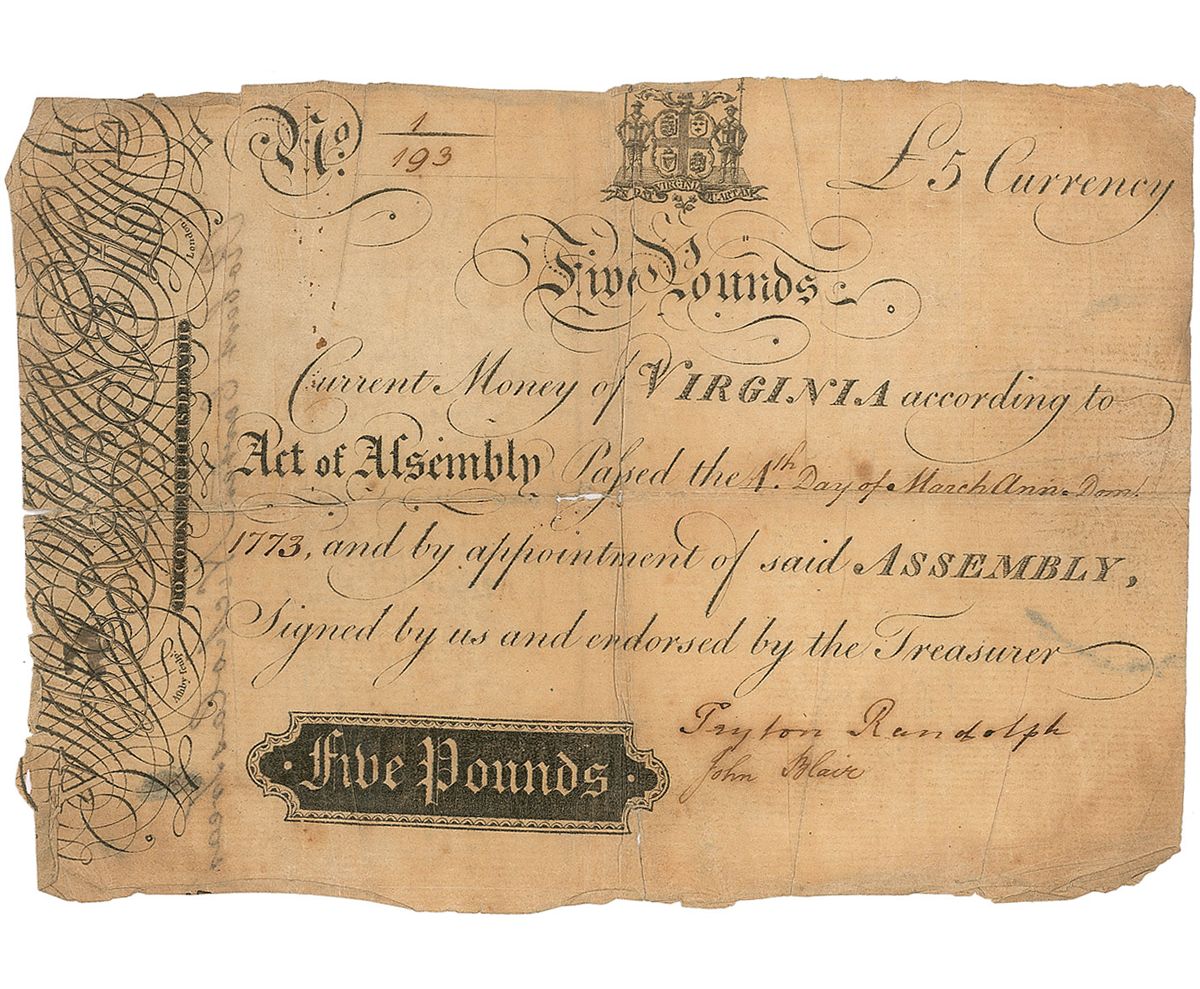 No. 1
193
EN DAT VIRGINIA QUARTAM
£5 Currency
Five Pounds
Current Money of VIRGINIA according to
Act of Aſsembly Paſsed the 4th. Day of March Ann. Dom!
1773, and by appointment of said ASSEMBLY,
Signed by us and endorsed by the Treasurer
Peyton Randolph
John Blair
Five Pounds
TO COUNTERFEIT IS DEATH
London
Ashby